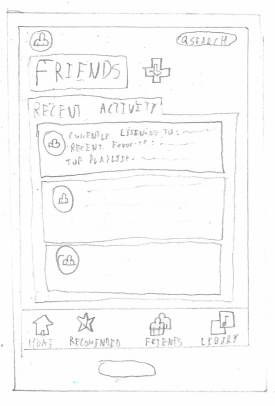 SEARCH
FRIENDS
RECENT ACTIVITY
CURRENTLY LISTENING TO:
RECENT FAVORITE:
TOP PLAYLIST:
HOME RECOMENDED FRIENDS LIBRARY